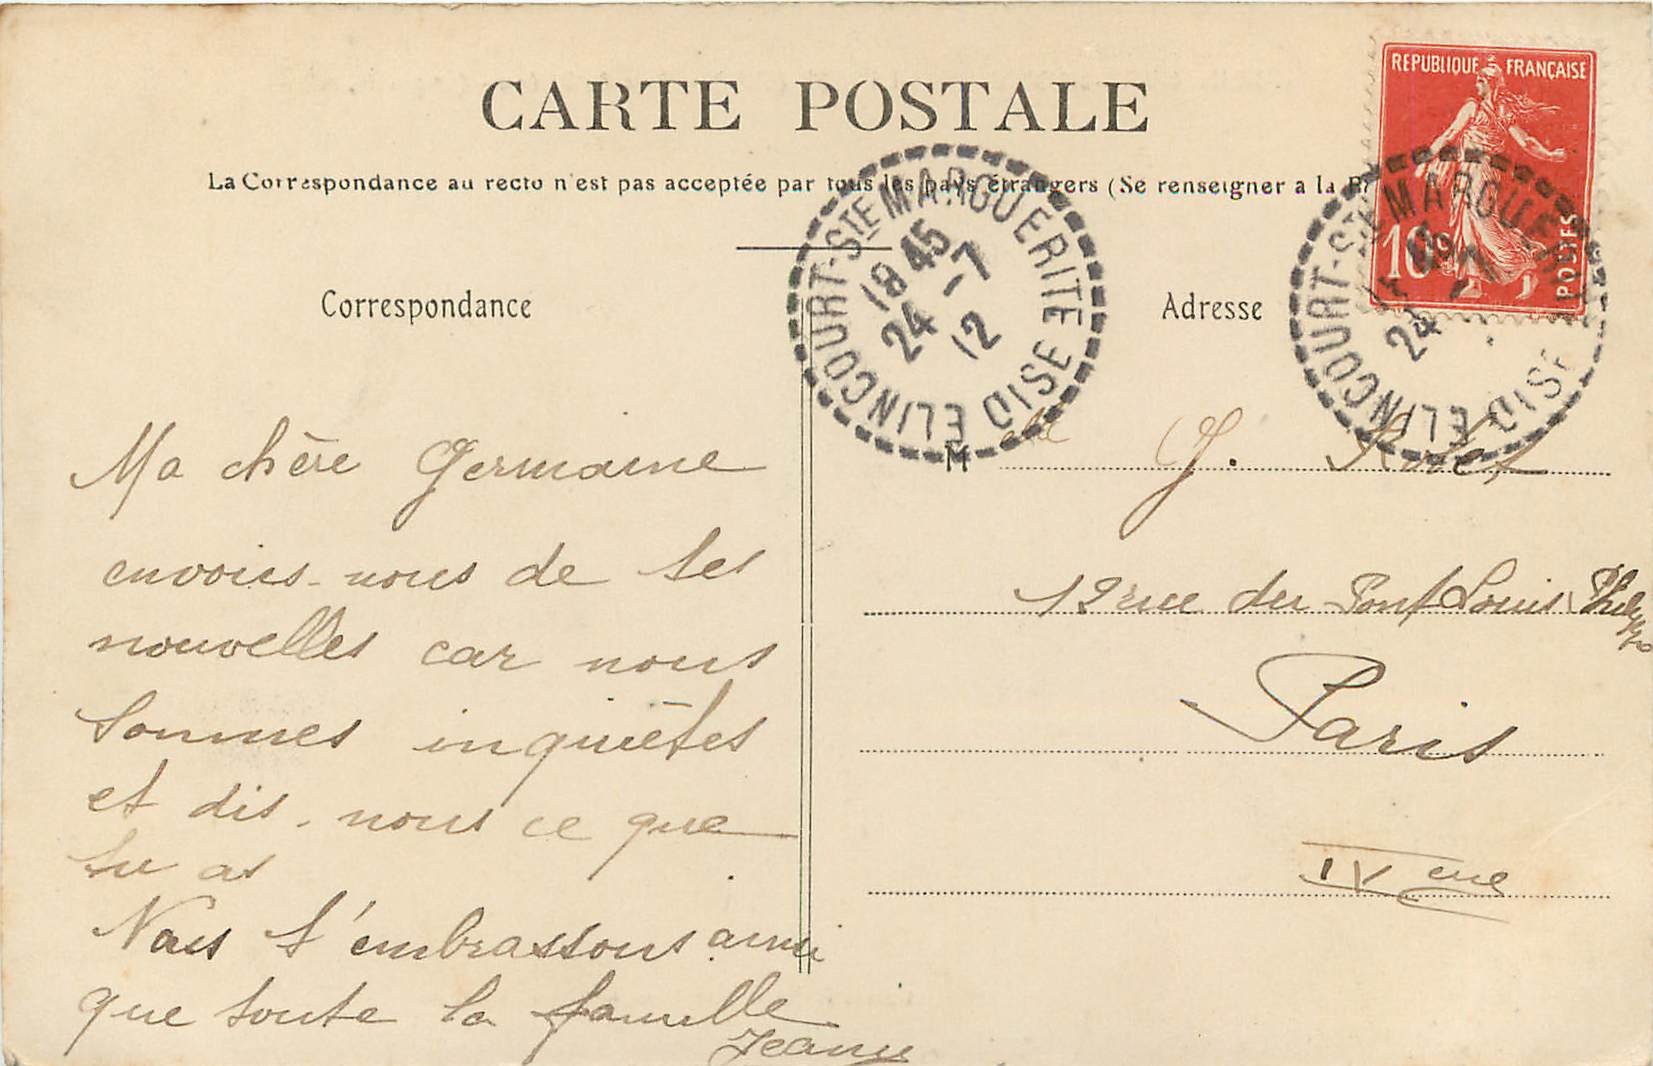 CARTE POSTALE
La Correspondance au recto n'est pas acceptée par tous les pays étrangers (Se renseigner a la
REPUBLIQUE FRANÇAISE
10c
POSTES
ELINCOURT-STE MARGUERITE OISE
18 45
24 -7
12
ELINCOURT-STE MARGUERITE OISE
24 -7
Correspondance
Adresse
Ma chère Germaine
envoies-nous de tes
nouvelles car nous
sommes inquiètes
et dis-nous ce que
tu as.
Nous t'embrassons ainsi
que toute la famille
Melle G.
12 rue du Pont Louis Philippe
Paris
IVeme